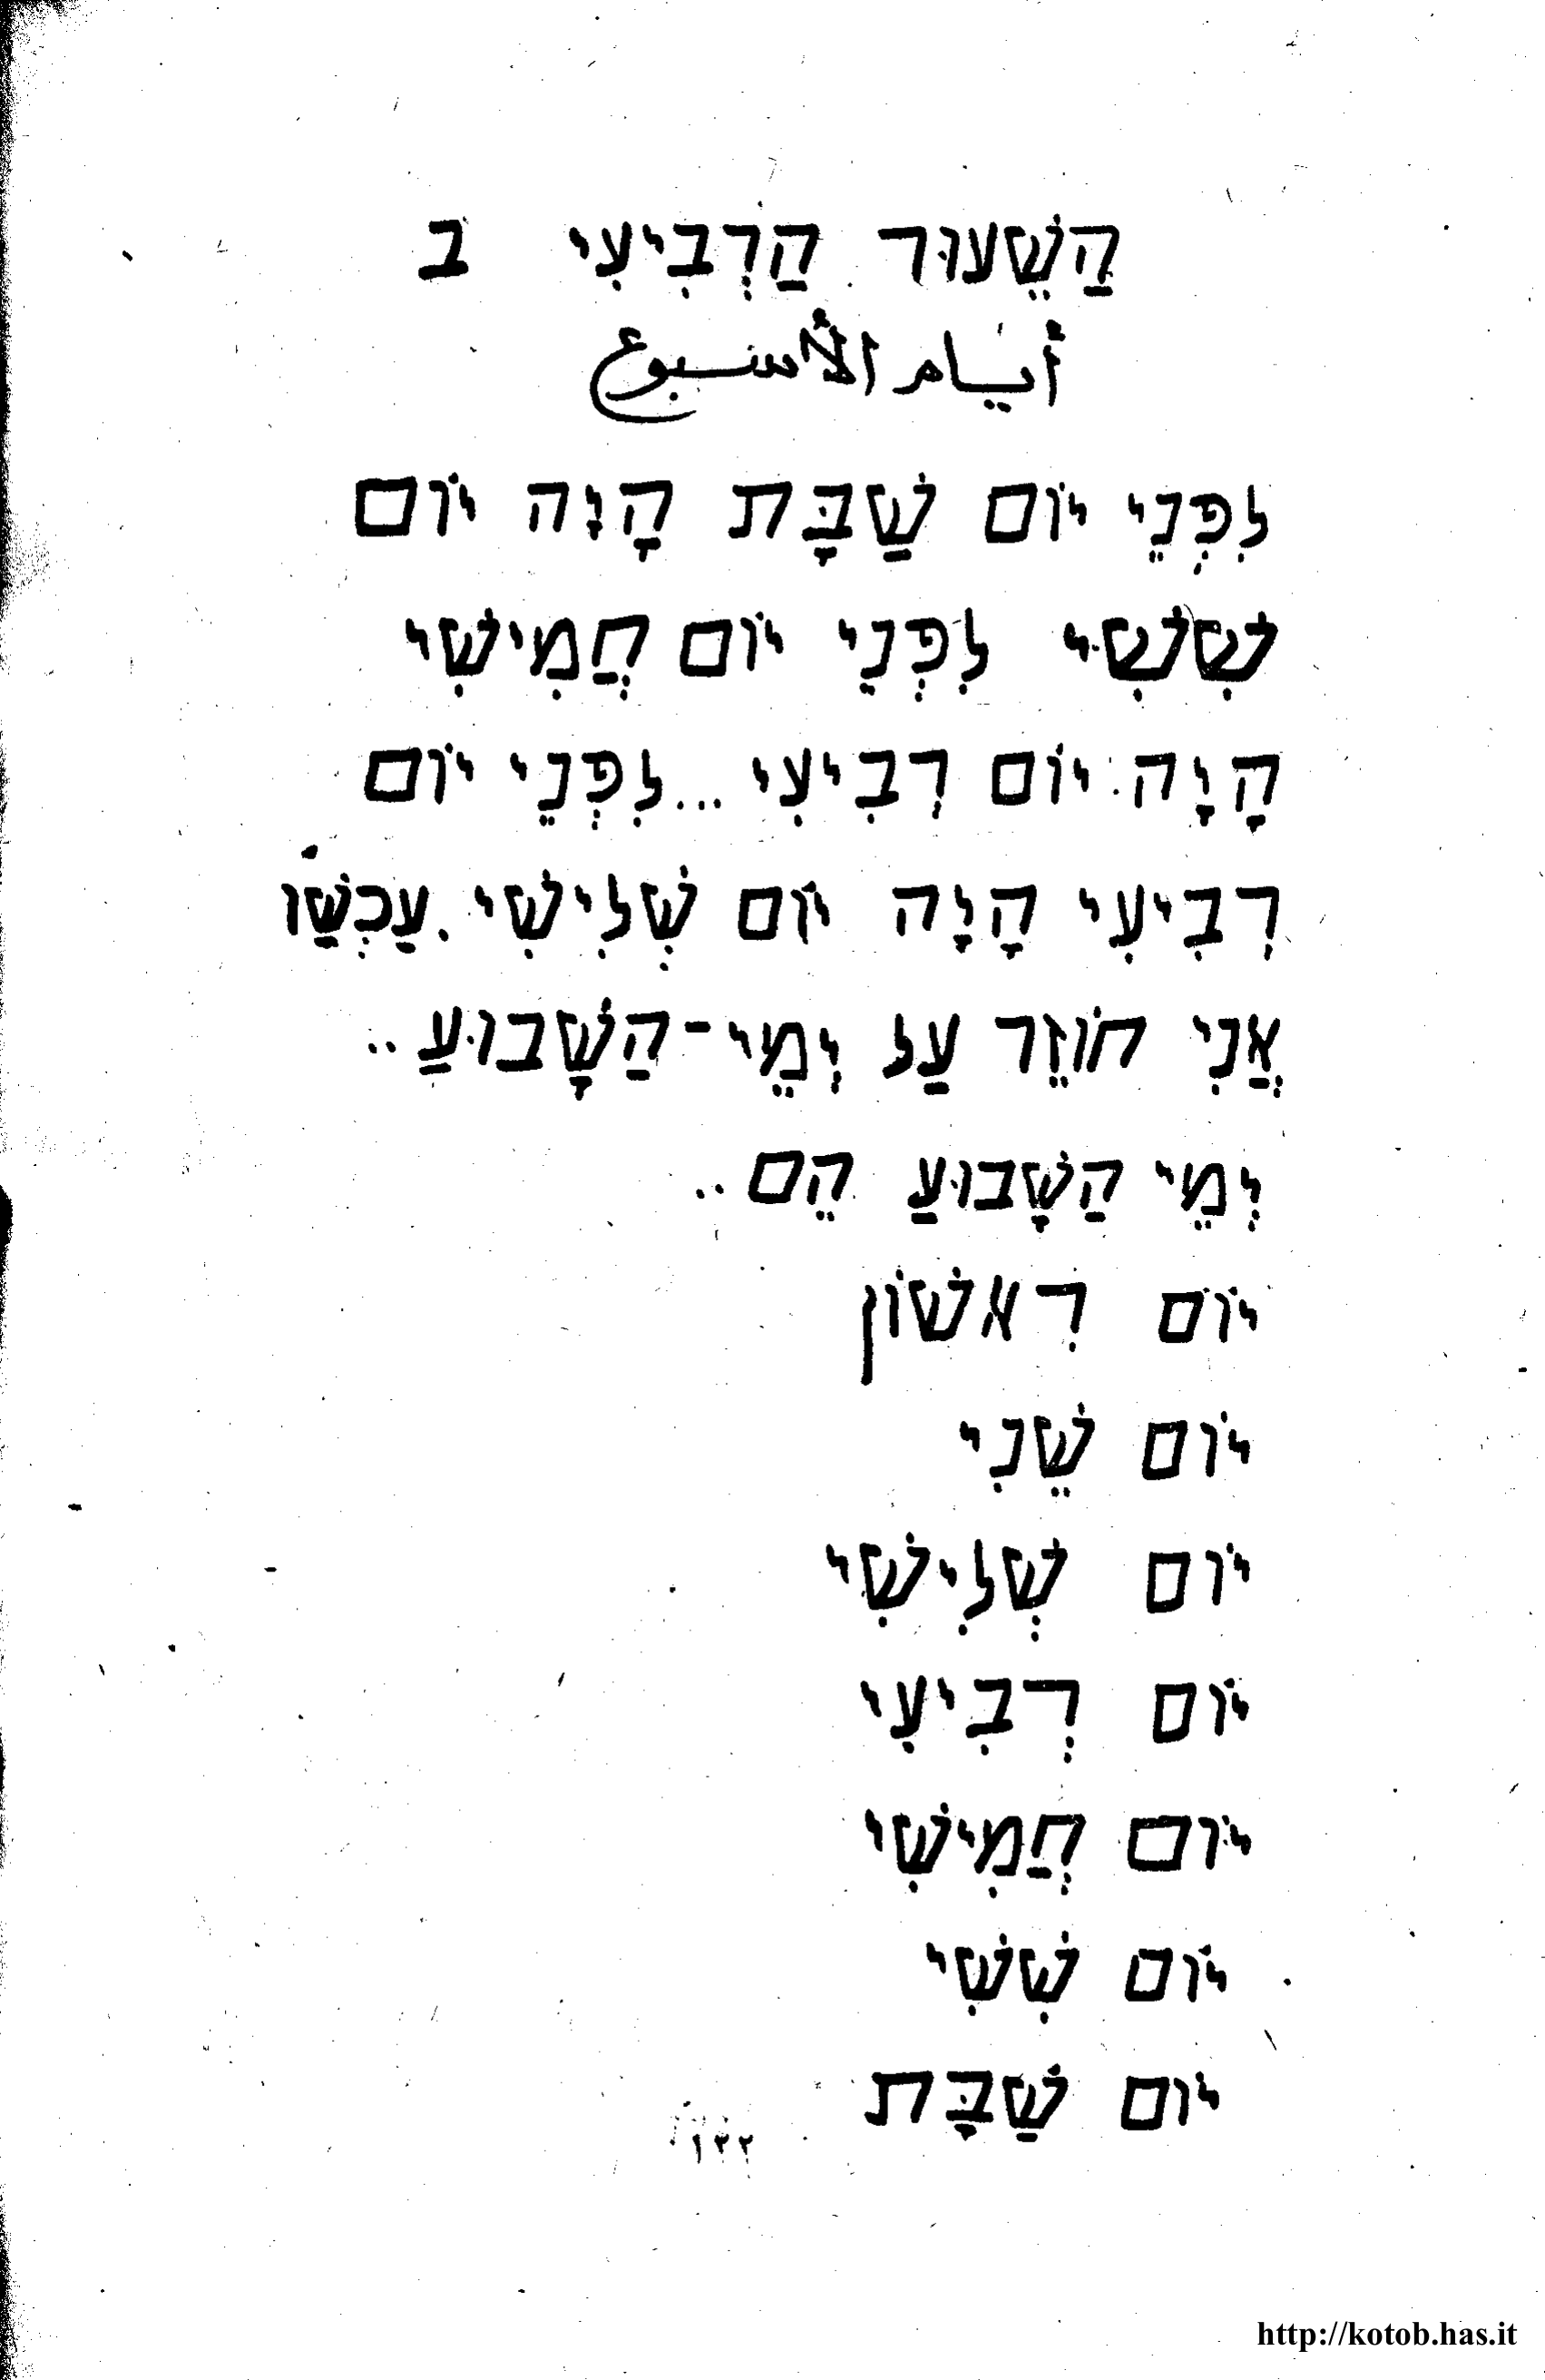 הַשֵׁעוּר הַרְבִיעִי ב
أيام الأسبوع
לִפְנֵי יוֹם שַׁבָּת הָוָה יוֹם
שִׁשִׁי לִפְנֵי יוֹם חֲמִישִׁי
הָוָה יוֹם רְבִיעִי ...לִפְנֵי יוֹם
רְבִיעִי הָוָה יוֹם שְׁלִישִׁי . עַכְשַׁו
אֲנִי חוֹזֵר עַל יְמֵי-הַשָׁבוּעַ ..
יְמֵי הַשָׁבוּעַ הֵם ..
יוֹם רִאשׁוֹן
יוֹם שֵׁנִי
יוֹם שְׁלִישִׁי
יוֹם רְבִיעִי
יוֹם חֲמִישִׁי
יוֹם שִׁשִׁי
יוֹם שַׁבָּת
http://kotob.has.it